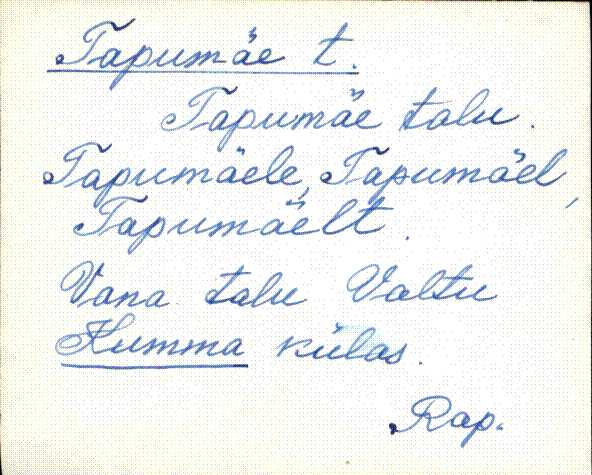 Tapumäe t.
Tapumäe talu.
Tapumäele, Tapumäel,
Tapumäelt.
Vana talu Valtu
Kumma külas.
Rap.